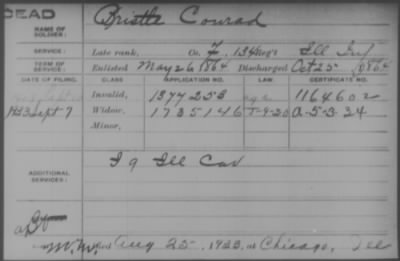 DEAD
NAME OF SOLDIER: Bristle Conrad
SERVICE: Late rank, Co. F, 134 Reg't Ill Inf
TERM OF SERVICE: Enlisted May 26 1864 Discharged Oct 25 1864
DATE OF FILING. CLASS APPLICATION NO. LAW CERTIFICATE NO.
Invalid, 1377253 1164602
1933 Sept 7 Widow, 1735146 A-5-3-34
Minor,
ADDITIONAL SERVICES: I 9 Ill Cav
Died Aug 25, 1933, at Chicago, Ill